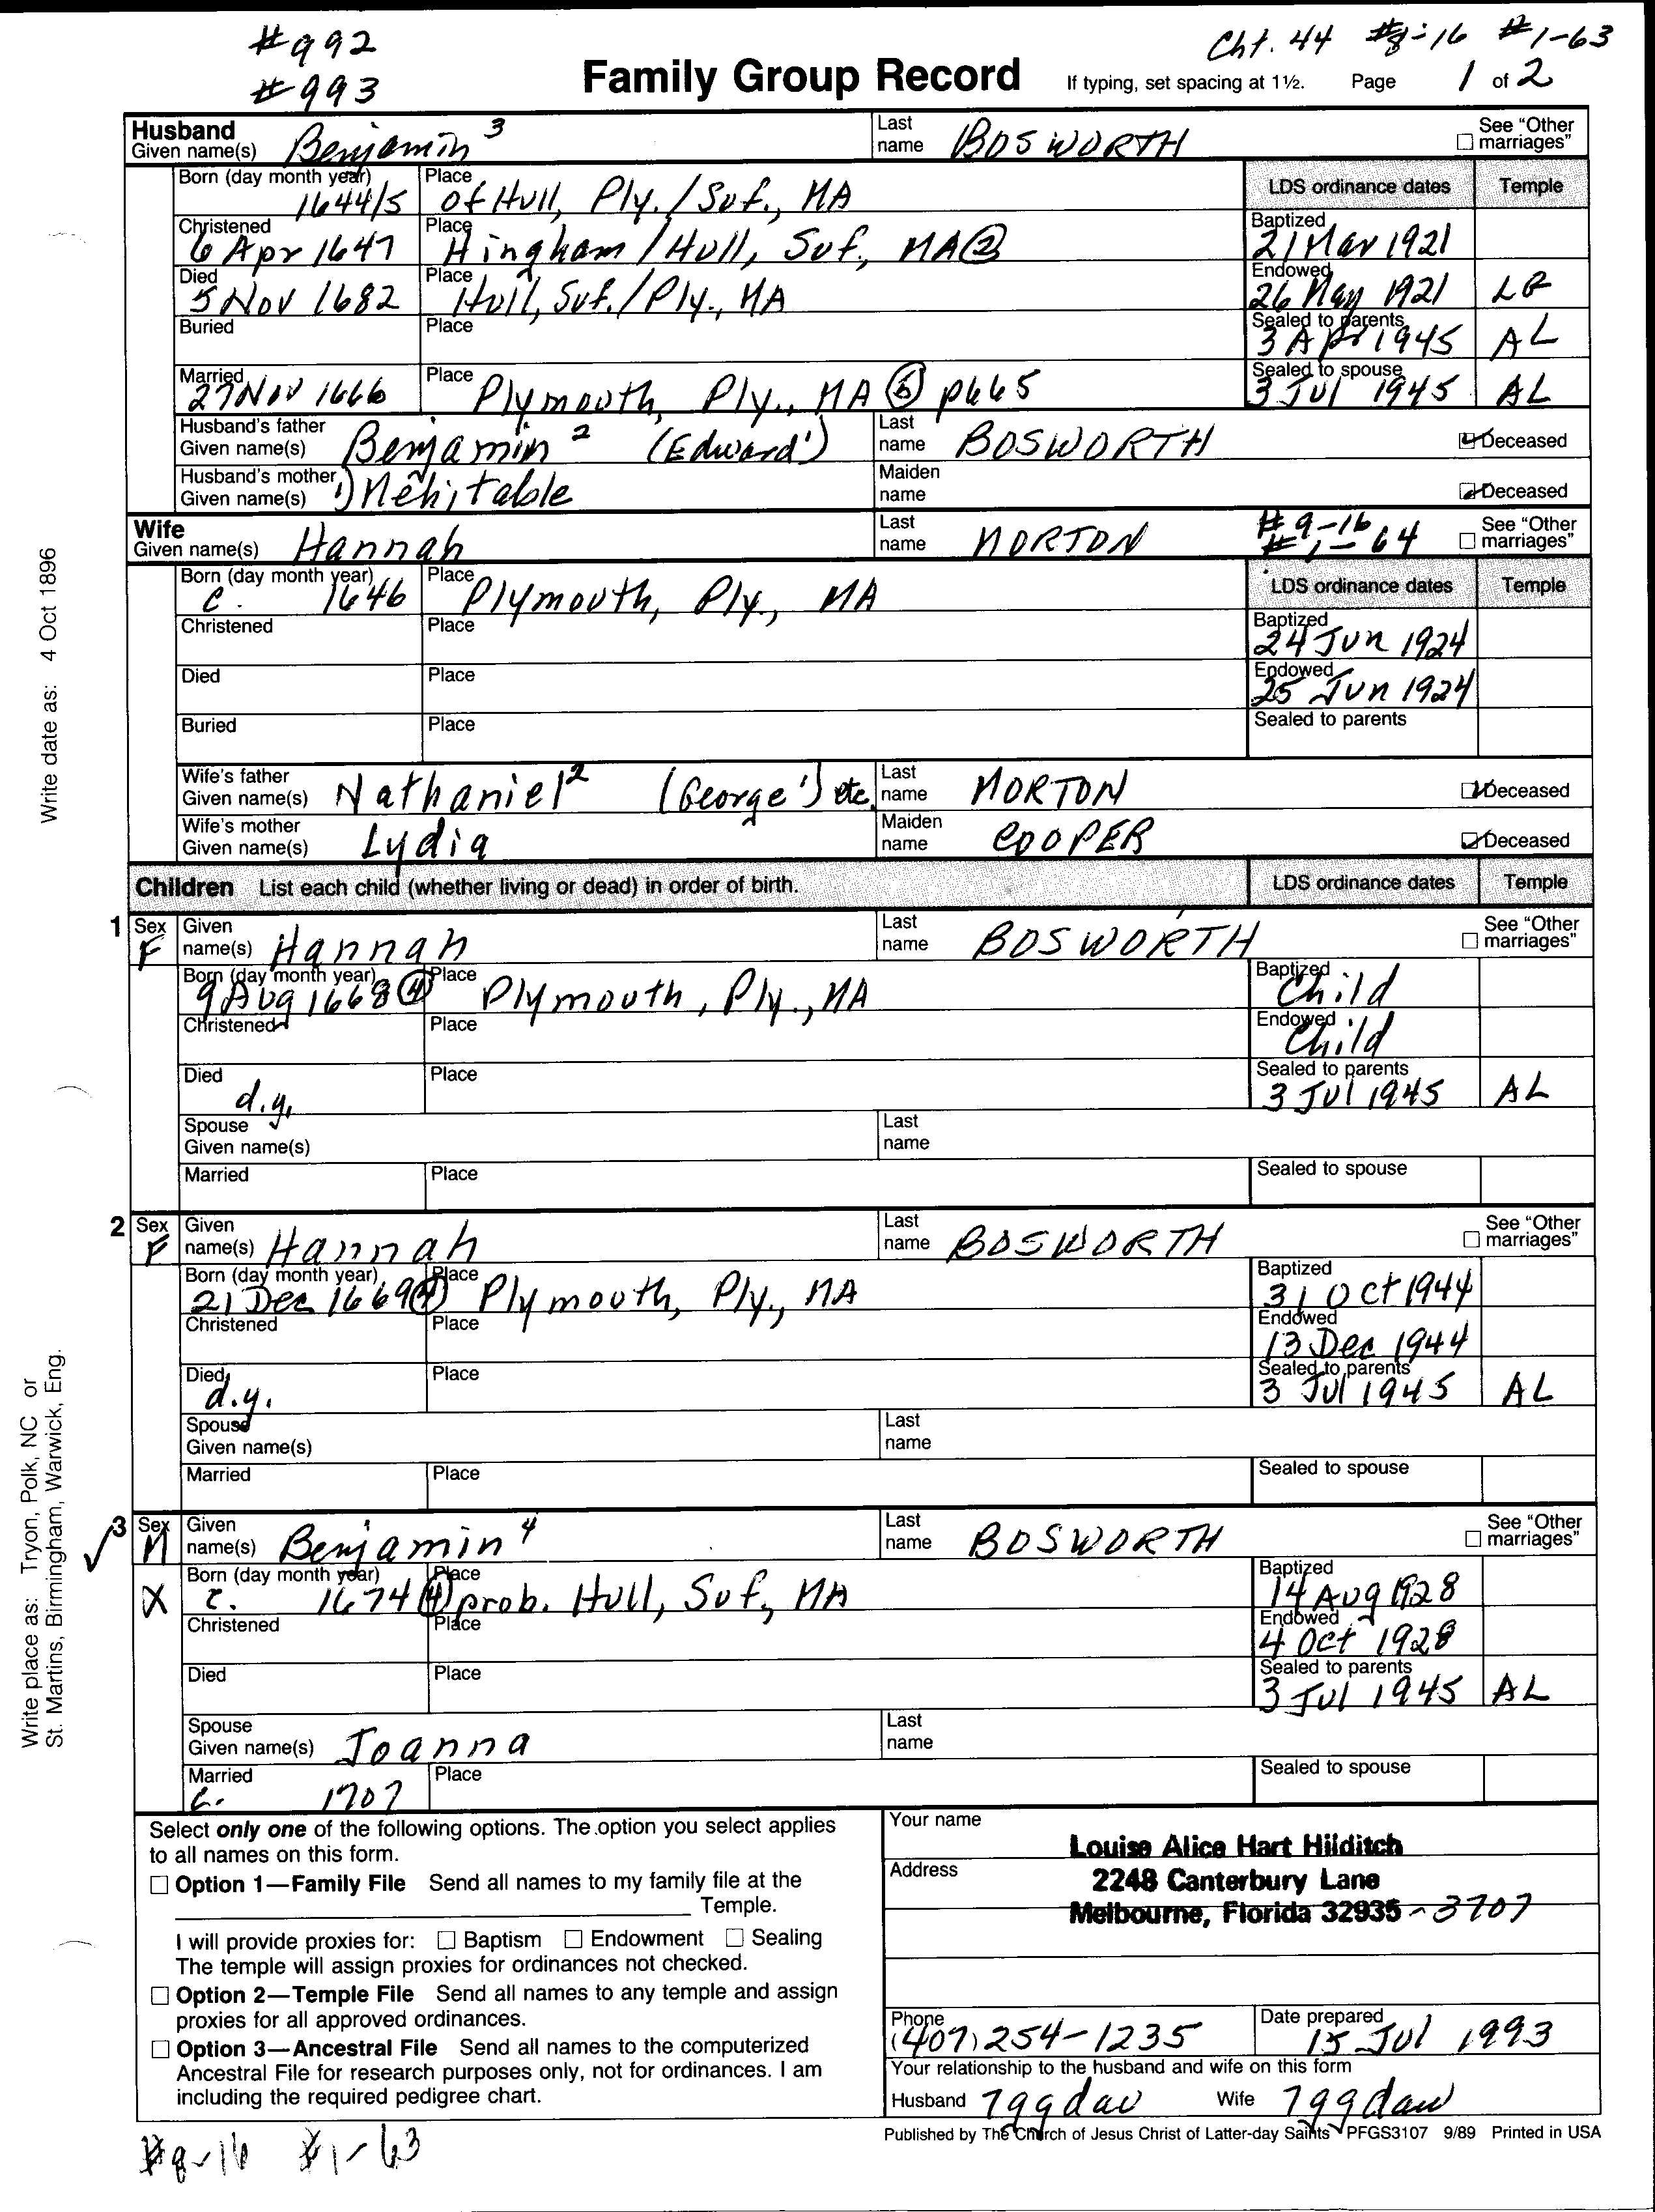 #992
#993
Cht. 44 #8-16 #1-63
Family Group Record If typing, set spacing at 1½. Page 1 of 2
Husband
Given name(s) Benjamin 3 Last name BOSWORTH See "Other marriages"
Born (day month year) 1644/5 Place of Hull, Ply. / Suf., MA LDS ordinance dates Temple
Christened 6 Apr 1647 Place Hingham / Hull, Suf., MA ② Baptized 21 Mar 1921
Died 5 Nov 1682 Place Hull, Suf. / Ply., MA Endowed 26 May 1921 LG
Buried Place Sealed to parents 3 Apr 1945 AL
Married 27 Nov 1666 Place Plymouth, Ply., MA ⑥ p665 Sealed to spouse 3 Jul 1945 AL
Husband's father Given name(s) Benjamin 2 (Edward 1) Last name BOSWORTH Deceased
Husband's mother Given name(s) 1) Mehitable Maiden name Deceased
Wife
Given name(s) Hannah Last name MORTON #9-16 #1-64 See "Other marriages"
Born (day month year) c. 1646 Place Plymouth, Ply., MA LDS ordinance dates Temple
Christened Place Baptized 24 Jun 1924
Died Place Endowed 25 Jun 1924
Buried Place Sealed to parents
Wife's father Given name(s) Nathaniel 2 (George 1) etc. Last name MORTON Deceased
Wife's mother Given name(s) Lydia Maiden name COOPER Deceased
Children List each child (whether living or dead) in order of birth. LDS ordinance dates Temple
1 Sex F Given name(s) Hannah Last name BOSWORTH See "Other marriages"
Born (day month year) 9 Aug 1668 ④ Place Plymouth, Ply., MA Baptized Child
Christened Place Endowed Child
Died d.y. Place Sealed to parents 3 Jul 1945 AL
Spouse Given name(s) Last name
Married Place Sealed to spouse
2 Sex F Given name(s) Hannah Last name BOSWORTH See "Other marriages"
Born (day month year) 21 Dec 1669 ④ Place Plymouth, Ply., MA Baptized 31 Oct 1944
Christened Place Endowed 13 Dec 1944
Died d.y. Place Sealed to parents 3 Jul 1945 AL
Spouse Given name(s) Last name
Married Place Sealed to spouse
3 Sex M Given name(s) Benjamin 4 Last name BOSWORTH See "Other marriages"
X Born (day month year) c. 1674 ④ Place prob. Hull, Suf, MA Baptized 14 Aug 1928
Christened Place Endowed 4 Oct 1928
Died Place Sealed to parents 3 Jul 1945 AL
Spouse Given name(s) Joanna Last name
Married c. 1707 Place Sealed to spouse
Select only one of the following options. The option you select applies
to all names on this form.
Option 1—Family File Send all names to my family file at the
Temple.
I will provide proxies for: Baptism Endowment Sealing
The temple will assign proxies for ordinances not checked.
Option 2—Temple File Send all names to any temple and assign
proxies for all approved ordinances.
Option 3—Ancestral File Send all names to the computerized
Ancestral File for research purposes only, not for ordinances. I am
including the required pedigree chart.
Your name Louise Alice Hart Hilditch
Address 2248 Canterbury Lane
Melbourne, Florida 32935-3707
Phone (407) 254-1235 Date prepared 15 Jul 1993
Your relationship to the husband and wife on this form
Husband 7ggdau Wife 7ggdau
Published by The Church of Jesus Christ of Latter-day Saints PFGS3107 9/89 Printed in USA
#8-16 #1-63
Write date as: 4 Oct 1896
Write place as: Tryon, Polk, NC or
St. Martins, Birmingham, Warwick, Eng.